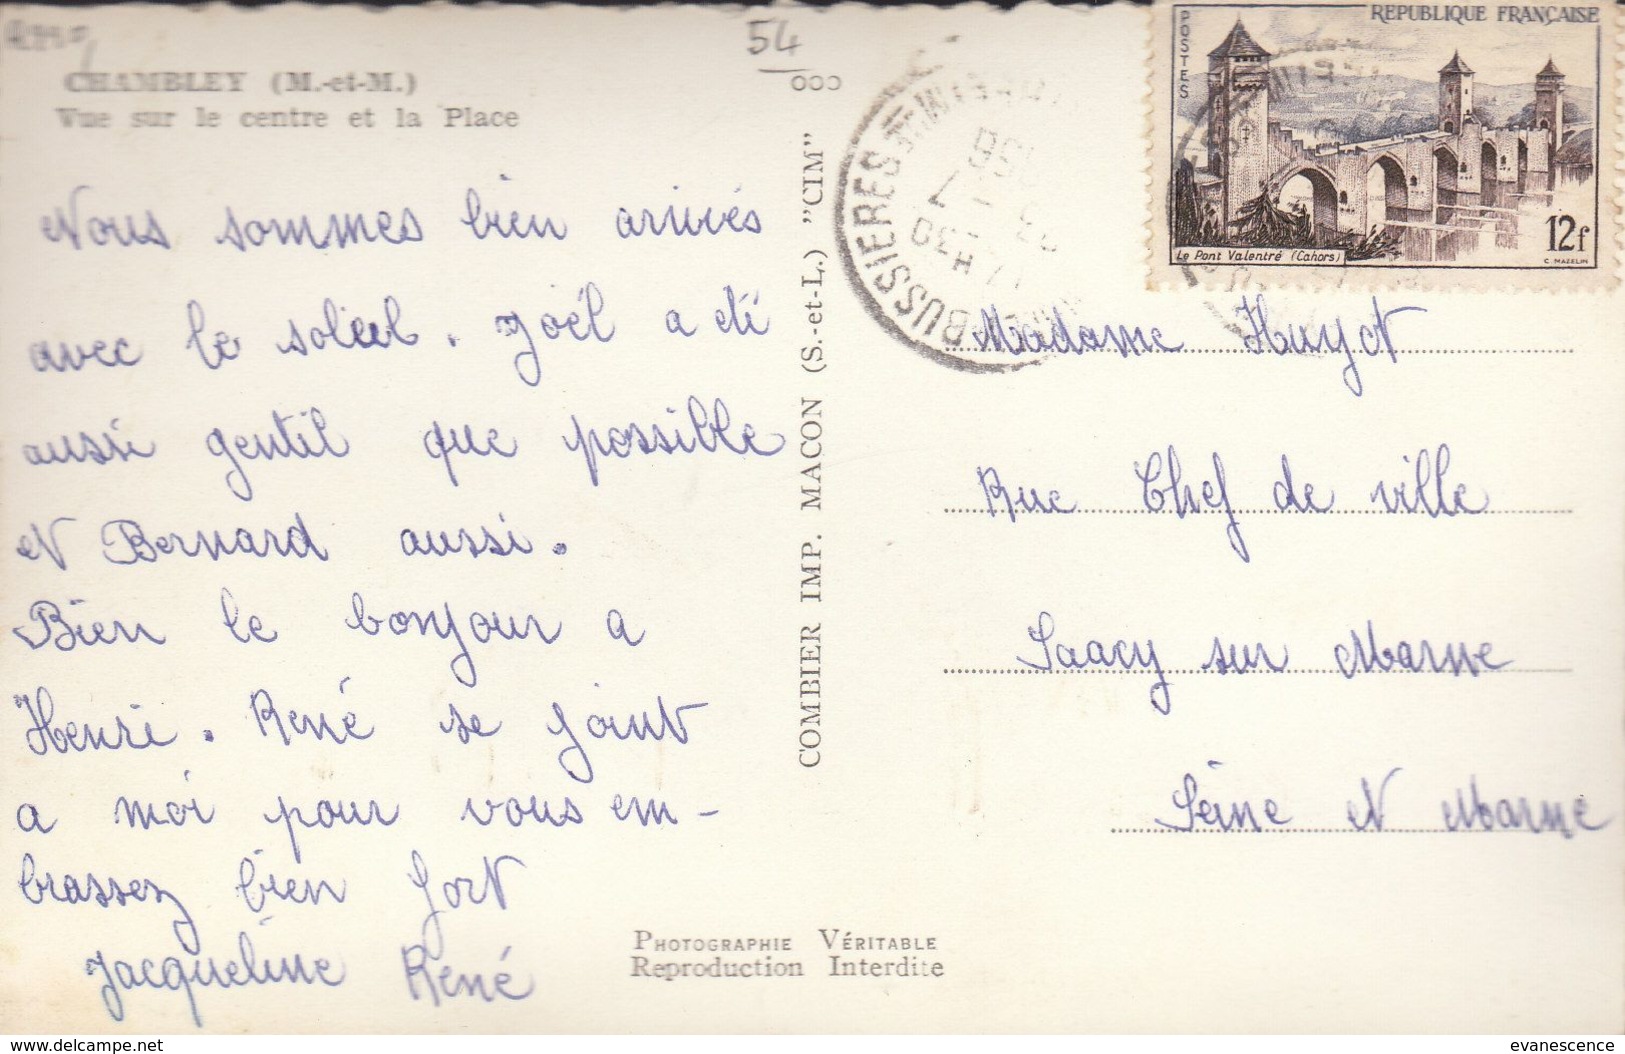 54
CHAMBLEY (M.-et-M.)
Vue sur le centre et la Place
Nous sommes bien arrivés
avec le soleil. Joël a été
aussi gentil que possible
et Bernard aussi.
Bien le bonjour a
Henri. René se joint
a moi pour vous em-
brassez bien fort
Jacqueline René
COMBIER IMP. MACON (S.-et-L.) "CIM"
PHOTOGRAPHIE VÉRITABLE
Reproduction Interdite
REPUBLIQUE FRANÇAISE
POSTES
12f
Le Pont Valentré (Cahors)
C. MAZELIN
BUSSIERES
Madame Huyot
Rue Chef de ville
Saacy sur Marne
Seine et Marne
delcampe.net
evanescence